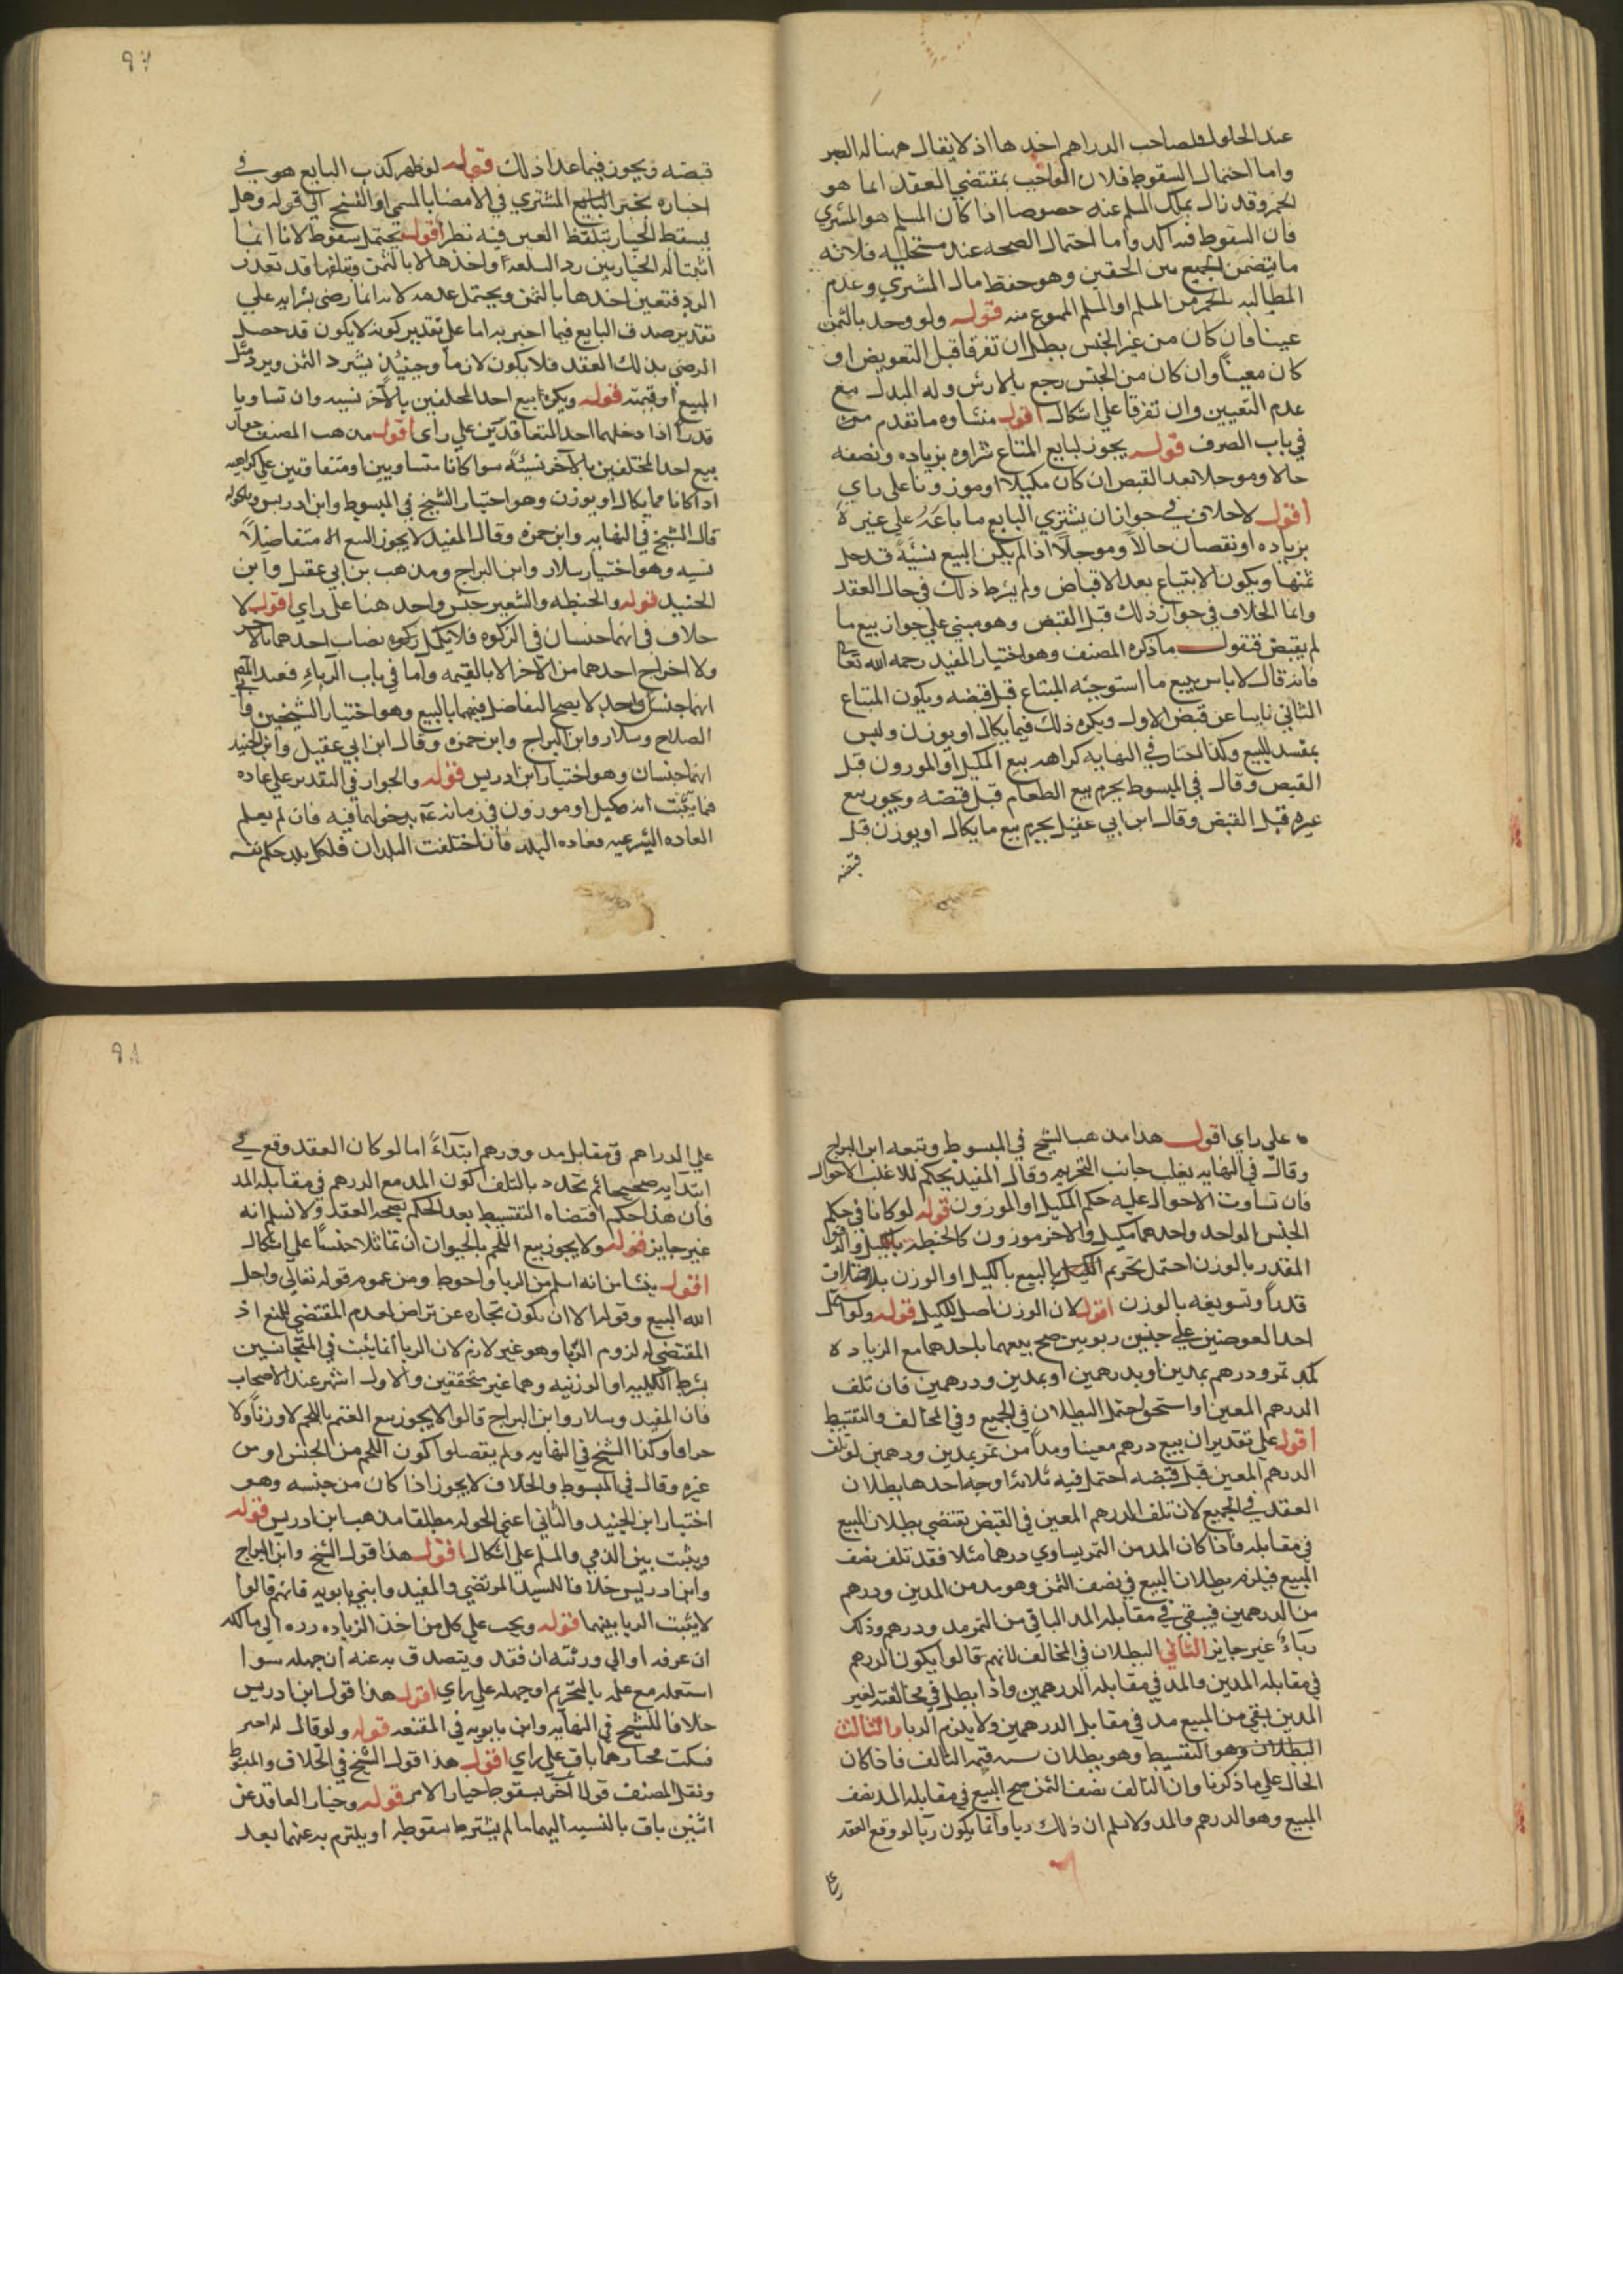 عند الحلول فلصاحب الدراهم اخذها اذ لا يقال همنا له الصبر
واما احتمال السقوط فلان الواجب بمقتضي العقد انما هو
الخمر وقد زال بملك المسلم عنه خصوصا اذا كان المسلم هو المشتري
فان السقوط فيه اكد واما احتمال الصحه عند مستحليه فلانه
ما يتضمن الجمع بين الحقين وهو حفظ مال المشتري وعدم
المطالبه بالخمر من المسلم او المسلم الممنوع منه قوله ولو وجد بالثمن
عيبا فان كان من غير الجنس بطل ان تفرقا قبل التعويض او
كان معينا وان كان من الجنس رجع بالارش وله البدل مع
عدم التعيين وان تفرقا علي اشكال اقول منشاوه ما تقدم من
في باب الصرف قوله يجوز لبايع المتاع شراوه بزياده ونقصه
حالا وموجلا بعد القبض ان كان مكيلا او موزونا علي راي
اقول لا خلاف في جواز ان يشتري البايع ما باعه علي غيره
بزياده او نقصان حالا وموجلا اذا لم يكن البيع نسيئة قد حل
ثمنها ويكون الابتياع بعد الاقباض ولم يشرط ذلك في حال العقد
وانما الخلاف في جواز ذلك قبل القبض وهو مبني علي جواز بيع ما
لم يقبض فنقول ما ذكره المصنف وهو اختيار المفيد رحمه الله تعا
فانه قال لا باس ببيع ما استوجبه المبتاع قبل قبضه ويكون المبتاع
الثاني نايبا عن قبض الاول ويكره ذلك فيما يكال او يوزن وليس
بمفسد للبيع وكذا اختار في النهايه كراهه بيع المكيل او الموزون قبل
القبض وقال في المبسوط يحرم بيع الطعام قبل قبضه ويجوز بيع
غيره قبل القبض وقال ابن ابي عقيل يحرم بيع ما يكال او يوزن قبل
قبضه
٩٧
قبضه ويجوز فيما عدا ذلك قوله لو ظهر كذب البايع هو في
اخباره تخير البايع المشتري في الامضا بالمسمي او الفسخ الي قوله وهل
يسقط الخيار بتلفظ العين فيه نظر اقول يحتمل سقوطه لانا انما
اثبتنا له الخيار بين رد السلعة او اخذها لا بالثمن وبتلفها قد تعذر
الرد فتعين اخذها بالثمن ويحتمل عدمه لانه انما رضي بشرايه علي
تقدير صدق البايع فيما اخبر به اما علي تقدير كونه لا يكون قد حصل
الرضي بذلك العقد فلا يكون لازما وحينئذ يسترد الثمن ويرد مثل
المبيع او قيمته قوله ويكره بيع احد المختلفين بالآخر نسيه وان تساويا
قدرا اذا دخلهما احد المتعاقدين علي راي اقول مذهب المصنف جواز
بيع احد المختلفين بالآخر نسيئة سوا كانا متساويين او متفاوتين علي كراهيه
اذا كانا مما يكال او يوزن وهو اختيار الشيخ في المبسوط وابن ادريس
قال الشيخ في النهايه وابن حمزه وقال المفيد لا يجوز البيع الا متفاضلا
نسيه وهو اختيار سلار وابن البراج ومذهب بن ابي عقيل وابن
الجنيد قوله والحنطه والشعير جنس واحد هنا علي راي اقول لا
خلاف في انهما جنسان في الزكوه فلا يكمل زكوه نصاب احدهما بالاخر
ولا اخراج احدهما من الاخر الا بالقيمه واما في باب الرباء فعند المصنف
انهما جنس واحد لا يصح التفاضل فيهما بالبيع وهو اختيار الشيخين وابي
الصلاح وسلار وابن البراج وابن حمزه وقال ابن ابي عقيل وابن الجنيد
انهما جنسان وهو اختيار ابن ادريس قوله والجواز في التقدير علي عاده
فما يثبت انه مكيل او موزون في زمانه عم بدخولهما فيه فان لم يعلم
العاده الشرعيه فعاده البلد فان اختلفت البلدان فلكل بلد حكم نفسه
علي راي اقول هذا مذهب الشيخ في المبسوط وتبعه ابن البراج
وقال في النهايه يغلب جانب التحريم وقال المفيد يحكم للاغلب الاحوال
فان تساوت الاحوال عليه حكم المكيل او الموزون قوله لو كانا في حكم
الجنس الواحد واحدهما مكيل والاخر موزون كالحنطة بالكيل والدقيق
المقدر بالوزن احتمل تحريم البيع بالكيل او الوزن
قدرا وتسويغه بالوزن اقول لان الوزن اصل للكيل قوله ولو اشتمل
احد العوضين علي جنسين ربويين صح بيعهما باحدهما مع الزياده
كمد تمر ودرهم بمدين او بدرهمين او بمدين ودرهمين فان تلف
الدرهم المعين او استحق احتمل البطلان في الجميع وفي المخالف والتقسيط
اقول علي تقدير ان يبيع درهم معينا ومدا من تمر بمدين ودرهمين لو تلف
الدرهم المعين قبل قبضه احتمل فيه ثلاثة اوجه احدها بطلان
العقد في الجميع لان تلف الدرهم المعين في القبض تقتضي بطلان البيع
في مقابله فاذا كان المد من التمر يساوي درهما مثلا فقد تلف نصف
المبيع فيلزم بطلان البيع في نصف الثمن وهو مد من المدين ودرهم
من الدرهمين فيبقي في مقابله المد الباقي من التمر مد ودرهم وذلك
رباء غير جايز الثاني البطلان في المخالف لانهم قالوا يكون الدرهم
في مقابله المدين والمد في مقابله الدرهمين واذا بطل في مخالفته لغير
المدين بقي من المبيع مد في مقابل الدرهمين ولا يلزم الربا والثالث
البطلان وهو التقسيط وهو بطلان قيمه التالف فاذا كان
الحال علي ما ذكرنا وان التالف نصف الثمن صح البيع في مقابله المد نصف
المبيع وهو الدرهم والمد ولا نسلم ان ذلك ربا وانما يكون ربا لو وقع العقد
علي
٩٨
علي الدراهم في مقابل مد ودرهم ابتداءً اما لو كان العقد وقع في
ابتدايه صحيحا ثم تجدد بالتلف كون المد مع الدرهم في مقابله المد
فان هذا حكم اقتضاه التقسيط بعد الحكم بصحه العقد ولا نسلم انه
غير جايز قوله ولا يجوز بيع اللحم بالحيوان ان تماثلا جنسا علي اشكال
اقول ينشا من انه اسلم من الربا واحوط ومن عموم قوله تعالي واحل
الله البيع وقوله الا ان تكون تجاره عن تراض لعدم المقتضي للمنع اذ
المقتضي له لزوم الربا وهو غير لازم لان الربا انما يثبت في المتجانسين
بشرط الكيليه او الوزنيه وهما غير متحققين والاول اشهر عند الاصحاب
فان المفيد وسلار وابن البراج قالوا لا يجوز بيع الغنم باللحم لا وزنا ولا
جزافا وكذا الشيخ في النهايه ولم يفصلوا كون اللحم من الجنس او من
غيره وقال في المبسوط والخلاف لا يجوز اذا كان من جنسه وهو
اختيار ابن الجنيد والثاني اعني الجواز مطلقا مذهب ابن ادريس قوله
ويثبت بين الذمي والمسلم علي اشكال اقول هذا قول الشيخ وابن البراج
وابن ادريس خلافا للسيد المرتضي والمفيد وابني بابويه فانهم قالوا
لا يثبت الربا بينهما قوله ويجب علي كل من اخذ الزياده رده الي مالكه
ان عرفه او الي ورثته ان فقد ويتصدق به عنه ان جهله سوا
استعمله مع علمه بالتحريم او جهله علي راي اقول هذا قول ابن ادريس
خلافا للشيخ في النهايه وابن بابويه في المقنعه قوله ولو قال له اختر
فسكت فخيارهما باق علي راي اقول هذا قول الشيخ في الخلاف والمبسوط
ونقل المصنف قولا آخر بسقوط خيار الامر قوله وخيار العاقد عن
اثنين باق بالنسبه اليهما ما لم يشترط سقوطه او يلتزم به عنهما بعد